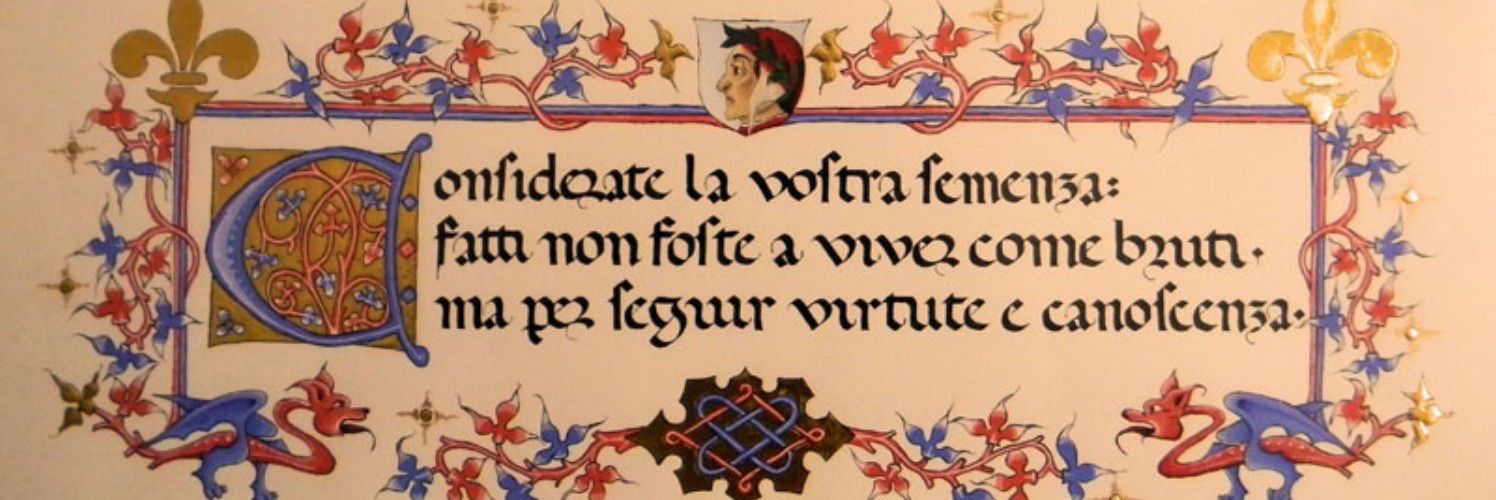 Conſiderate la voſtra ſemenza:
fatti non foſte a viver come bruti.
ma per ſeguir virtute e canoſcenza.